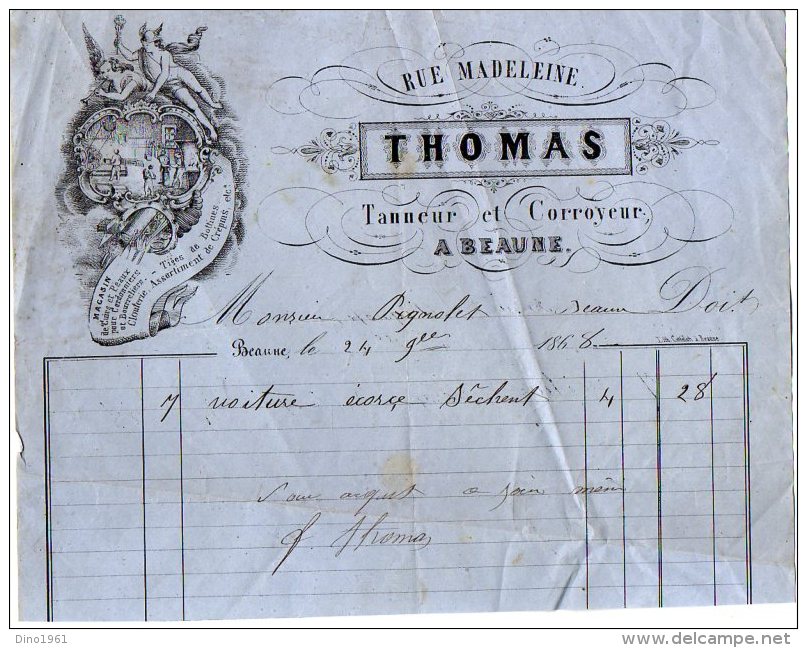 RUE MADELEINE.
THOMAS
Tanneur et Corroyeur,
A BEAUNE.
MAGASIN
de Cuirs et Peaux
pour Cordonniers
et Bourreliers. - Tiges de Bottines
Clouterie, Assortiment de Crépins, etc.
Monsieur Pignolet Beaune Doit
Beaune, le 24 9bre 1868
Lith. à Beaune
7 voiture écorçe Sêchent 4 28
Pour a mème
Thomas
Dino1961
delcampe.net